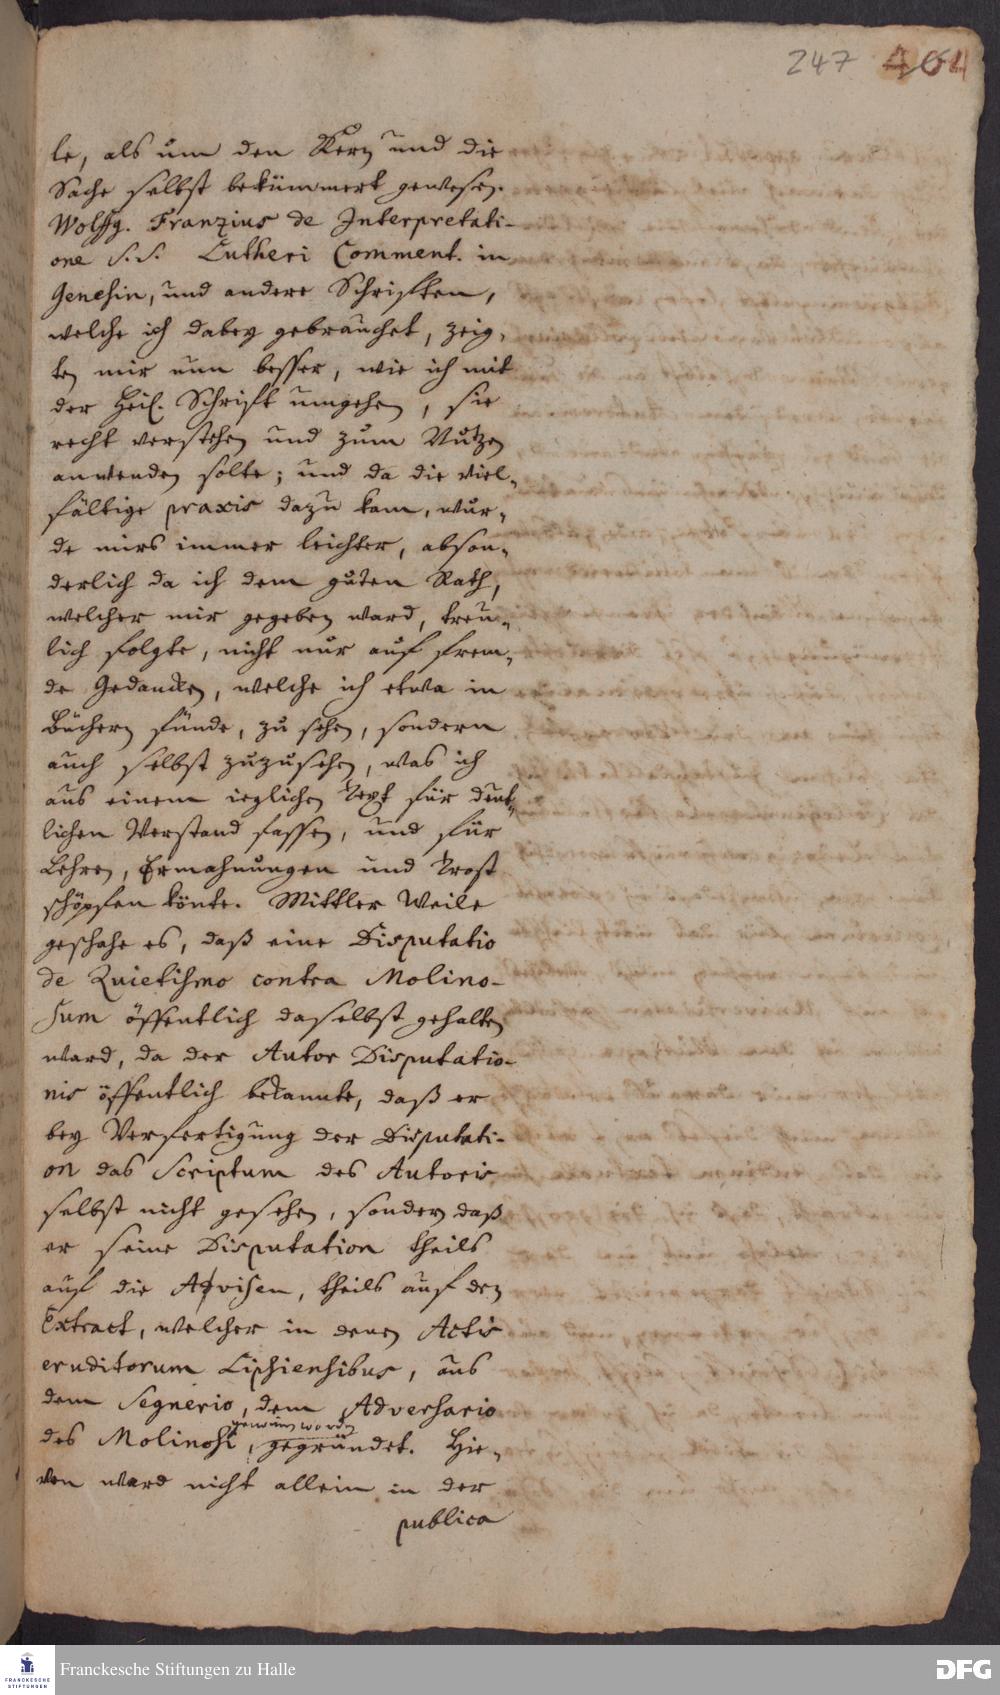 247 404
le, als um den Kern und die
Sache selbst bekümmert gewesen.
Wolffg. Franzius de Interpretati-
one S.S. Lutheri Comment. in
Genesin, und andere Schrifften,
welche ich dabey gebrauchet, zeig-
ten mir nun besser, wie ich mit
der Heil. Schrift umgehen, sie
recht verstehen und zum Nutzen
anwenden solte; und da die viel-
fältige praxis dazu kam, wur-
de mirs immer leichter, abson-
derlich da ich dem guten Rath,
welcher mir gegeben ward, treu-
lich folgte, nicht nur auf frem-
de Gedancken, welche ich etwa in
Büchern fünde, zu sehen, sondern
auch selbst zuzusehen, was ich
aus einem ieglichen Text für deut-
lichen Verstand fassen, und für
Lehren, Ermahnungen und Trost
schöpfen könte. Mittler Weile
geschahe es, daß eine Disputatio
de Quietismo contra Molino-
sum öffentlich daselbst gehalten
ward, da der Autor Disputatio-
nis öffentlich bekannte, daß er
bey Verfertigung der Disputati-
on das Scriptum des Autoris
selbst nicht gesehen, sondern daß
er seine Disputation theils
auf die Advisen, theils auf den
Extract, welcher in denen Actis
eruditorum Lipsiensibus, aus
dem Segnerio, dem Adversario
genommen worden
des Molinosi, gegründet. Hie-
von ward nicht allein in der
publica
FRANCKESCHE STIFTUNGEN
Franckesche Stiftungen zu Halle
DFG